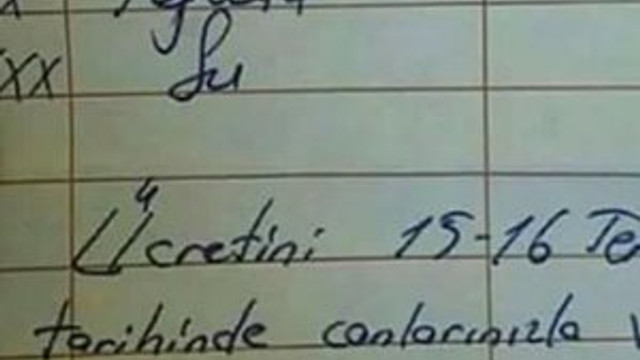 xx Su
Ücretini 15-16 Te
tarihinde canlarınızla